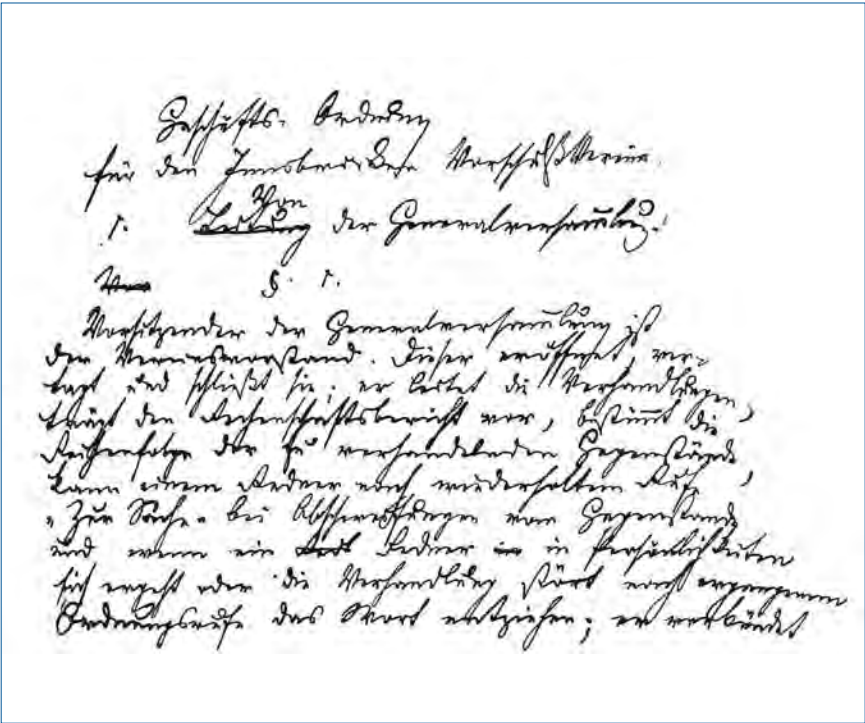 Geschäfts-Ordnung
für den Innsbrucker Vorschuß Verein.
Von
1. Leitung der Generalversam̄lung.
Von § 1.
Vorsitzender der Generalversam̄lung ist
der Vereinsvorstand. Dieser eröffnet, ver-
tagt und schließt sie; er leitet die Verhandlungen,
trägt den Rechenschaftsbericht vor, bestim̄t die
Reihenfolge der zu verhandelnden Gegenstände,
kann einem Redner nach wiederholtem Rufe
"Zur Sache" bei Abschweifungen vom Gegenstande
und wenn ein Redner in in Persönlichkeiten
sich ergeht oder die Verhandlung stört nach ergangenem
Ordnungsrufe das Wort entziehen; er verkündet